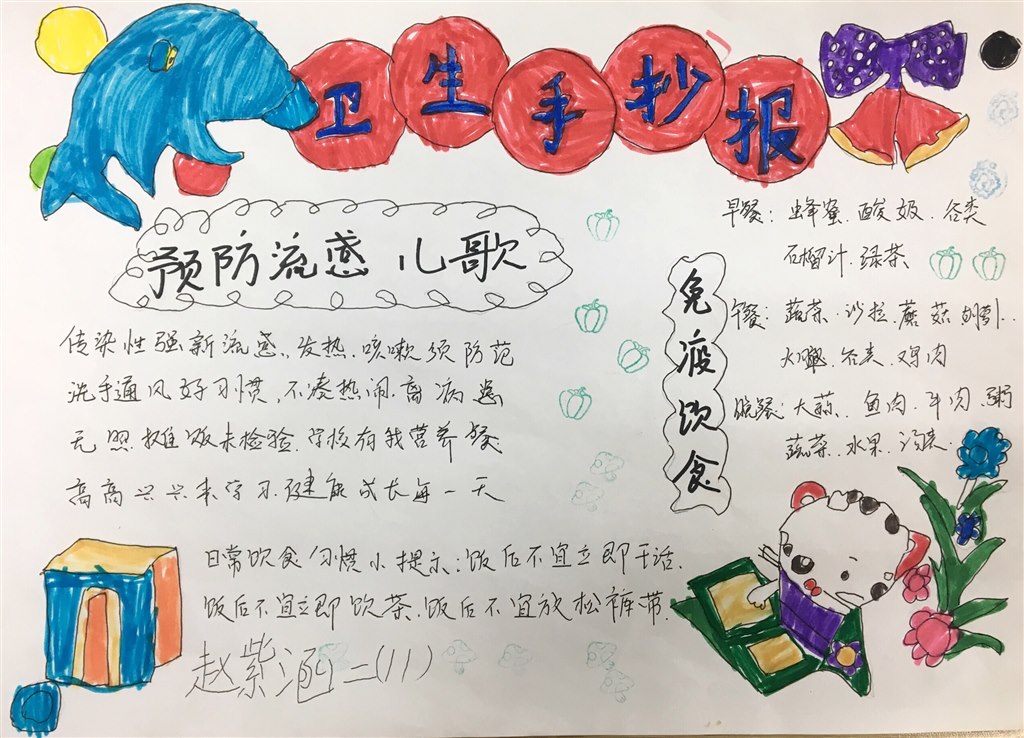 卫生手抄报
预防流感 儿歌
传染性强新流感、发热、咳嗽须防范
洗手通风好习惯,不凑热闹离病患
无照摊饭未检验.学校有我营养餐
高高兴兴来学习.健康成长每一天
免疫饮食
早餐:蜂蜜.酸奶.谷类
石榴汁.绿茶
午餐:蔬菜.沙拉.蘑菇
谷类.鸡肉
晚餐:大蒜.鱼肉.牛肉.粥
蔬菜.水果.汤
日常饮食习惯小提示:饭后不宜立即干活.
饭后不宜立即饮茶.饭后不宜放松裤带.
赵紫涵二(11)